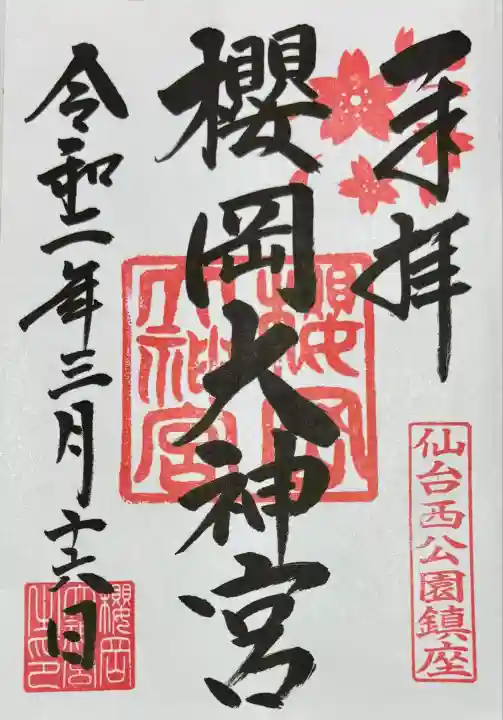 奉拝
仙台西公園鎮座
櫻岡大神宮
櫻岡大神宮
令和二年三月十六日